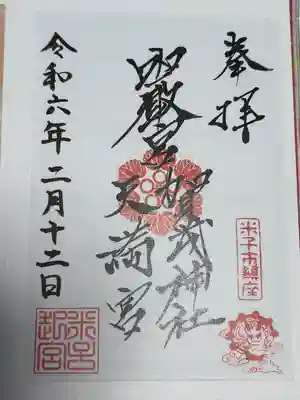 奉拝
賀茂神社
天満宮
令和六年二月十二日
米子市鎮座